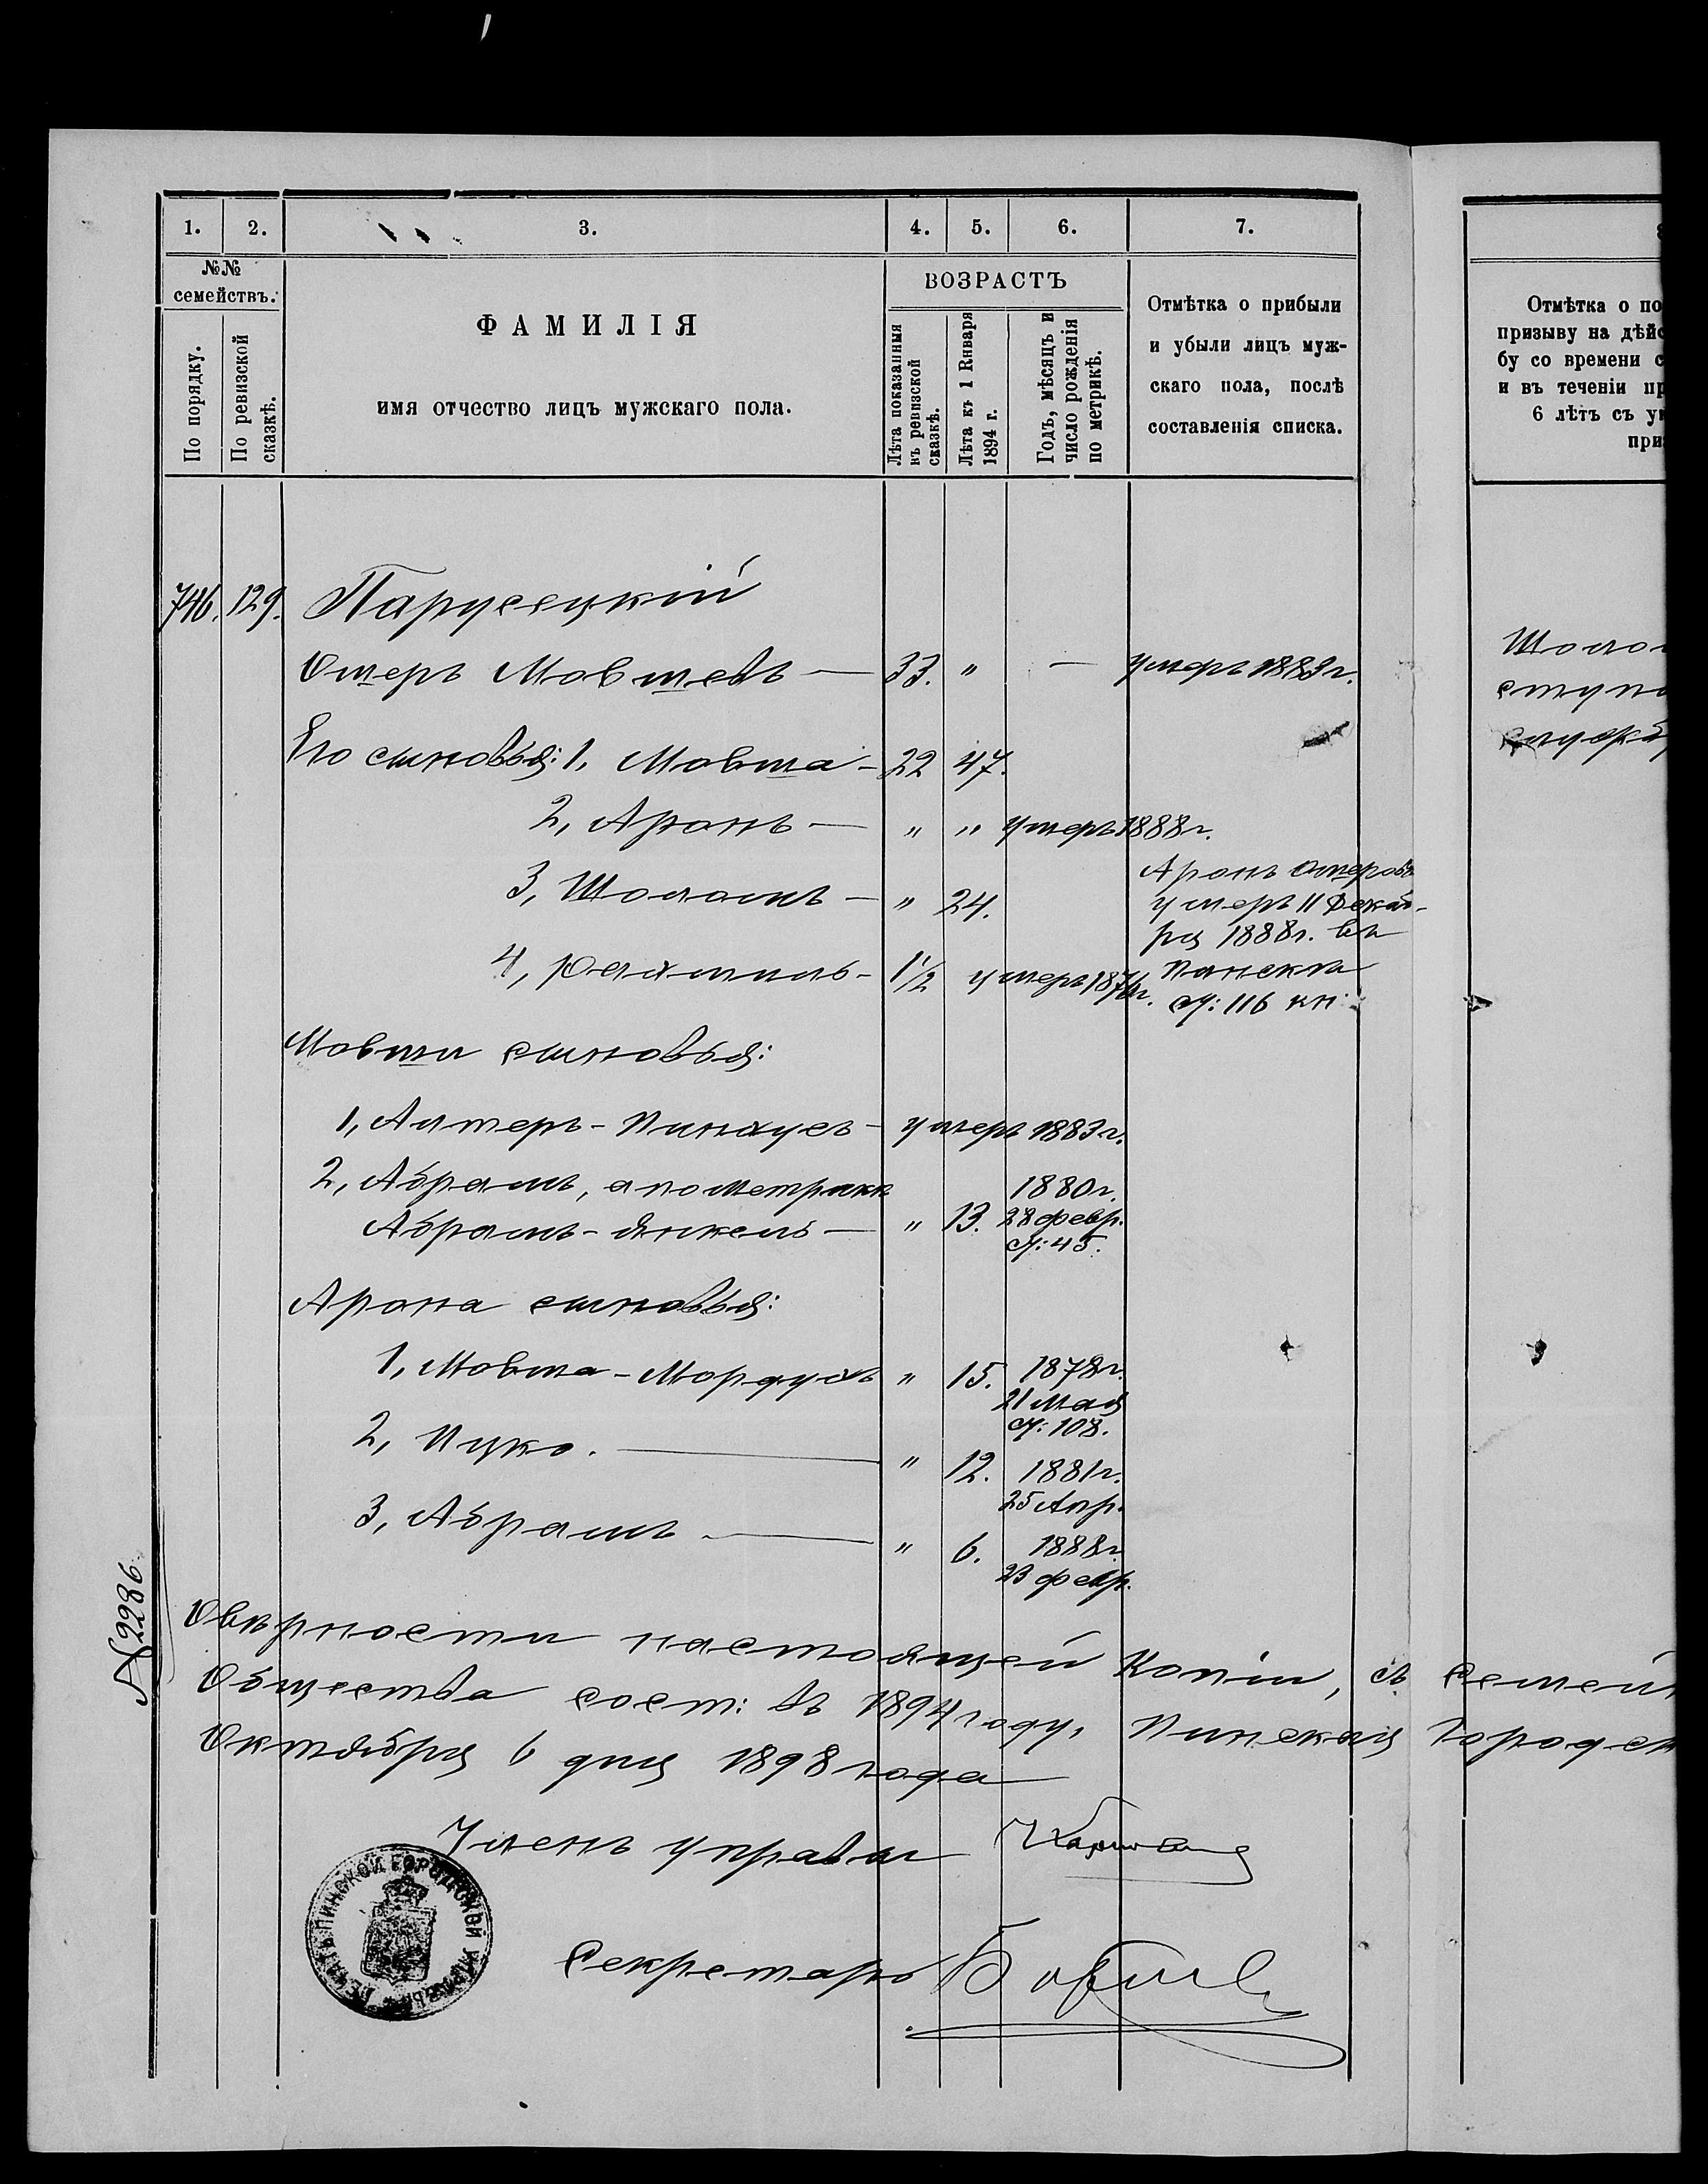 1. 2. 3. 4. 5. 6. 7.
№№ семействъ.
По порядку.
По ревизской сказкѣ.
ФАМИЛІЯ
имя отчество лицъ мужскаго пола.
ВОЗРАСТЪ
Лѣта показанныя въ ревизской сказкѣ.
Лѣта къ 1 Января 1894 г.
Годъ, мѣсяцъ и число рожденія по метрикѣ.
Отмѣтка о прибыли
и убыли лицъ муж-
скаго пола, послѣ
составленія списка.
Отмѣтка о по
призыву на дѣйс
бу со времени с
и въ теченіи пр
6 лѣтъ съ ук
приз
746. 129. Парусецкій
Ошеръ Мовшевъ — 33. " — умеръ 1883 г.
Его сыновья: 1, Мовша - 22 47.
2, Аронъ — " " умеръ 1888 г.
3, Шоломъ — " 24.
Аронъ Ошеровъ
умеръ 11 Декаб-
ря 1888 г. въ
Пинскѣ
4, Рахмиль - 1 1/2 умеръ 1876 г.
№: 116 кн:
Мовши сыновья:
1, Алтеръ - Пинхусъ - умеръ 1883 г.
2, Абрамъ, а по метрикѣ
Абрамъ - Янкель — " 13. 1880 г.
28 февр.
№: 45.
Арона сыновья:
1, Мовша - Мордухъ " 15. 1878 г.
21 мая
№: 108.
2, Ицко. — " 12. 1881 г.
25 Апр.
3, Абрамъ — " 6. 1888 г.
23 февр.
№ 2286
О вѣрности настоящей копіи, съ семей
Общества сост: въ 1894 году, Пинская Городск
Октября 6 дня 1898 года
Членъ управы
Секретарь
ПЕЧАТЬ ПИНСКОЙ ГОРОДСКОЙ УПРАВЫ